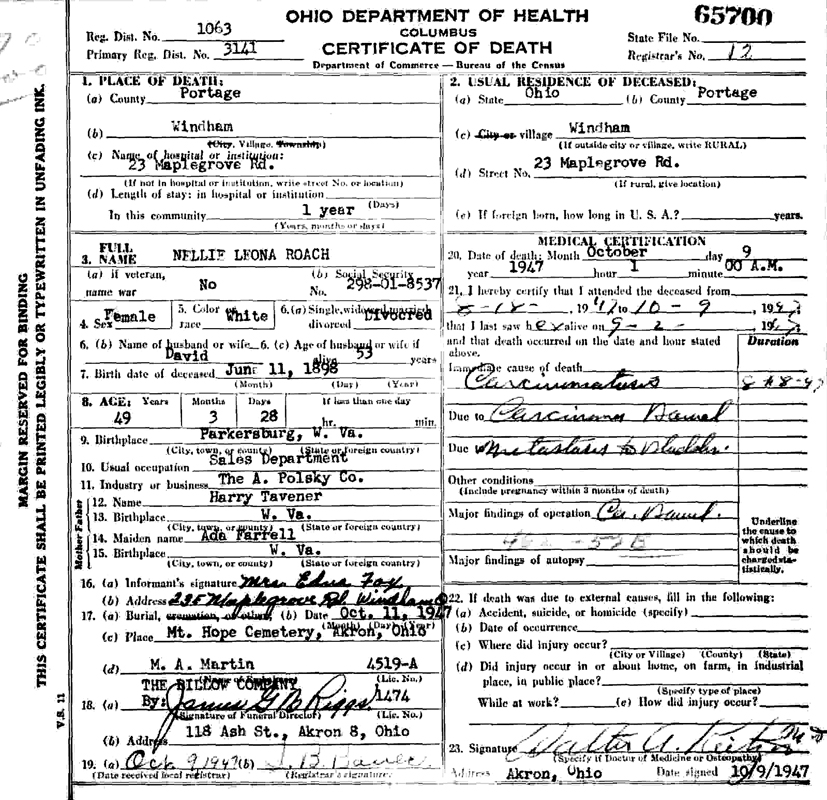 OHIO DEPARTMENT OF HEALTH
COLUMBUS
CERTIFICATE OF DEATH
Department of Commerce — Bureau of the Census
Reg. Dist. No. 1063
Primary Reg. Dist. No. 3141
65700
State File No.
Registrar's No. 12
MARGIN RESERVED FOR BINDING
THIS CERTIFICATE SHALL BE PRINTED LEGIBLY OR TYPEWRITTEN IN UNFADING INK.
V.S. 11
1. PLACE OF DEATH:
(a) County Portage
(b) Windham
(City, Village, Township)
(c) Name of hospital or institution:
23 Maplegrove Rd.
(If not in hospital or institution, write street No. or location)
(d) Length of stay: in hospital or institution
(Days)
In this community 1 year
(Years, months or days)
2. USUAL RESIDENCE OF DECEASED:
(a) State Ohio (b) County Portage
(c) City or village Windham
(If outside city or village, write RURAL)
(d) Street No. 23 Maplegrove Rd.
(If rural, give location)
(e) If foreign born, how long in U. S. A.? years.
3. FULL NAME NELLIE LEONA ROACH
(a) if veteran, name war No
(b) Social Security No. 298-01-8537
4. Sex Female 5. Color or race White 6. (a) Single, widowed, married, divorced Divocred
6. (b) Name of husband or wife David 6. (c) Age of husband or wife if alive 53 years
7. Birth date of deceased June 11, 1898
(Month) (Day) (Year)
8. AGE: Years Months Days If less than one day
49 3 28 hr. min.
9. Birthplace Parkersburg, W. Va.
(City, town, or county) (State or foreign country)
10. Usual occupation Sales Department
11. Industry or business The A. Polsky Co.
Father
12. Name Harry Tavener
13. Birthplace W. Va.
(City, town, or county) (State or foreign country)
Mother
14. Maiden name Ada Farrell
15. Birthplace W. Va.
(City, town, or county) (State or foreign country)
16. (a) Informant's signature Mrs. Edna Fox
(b) Address 23 E Maplegrove Rd. Windham O
17. (a) Burial, cremation, or other, (b) Date Oct. 11, 1947
(Month) (Day) (Year)
(c) Place Mt. Hope Cemetery, Akron, Ohio
(d) M. A. Martin 4519-A
(Lic. No.)
THE BILLOW COMPANY
18. (a) By: James G B Riggs 1474
(Signature of Funeral Director) (Lic. No.)
(b) Address 118 Ash St., Akron 8, Ohio
19. (a) Oct 9 1947 (b)
(Date received local registrar) (Registrar's signature)
MEDICAL CERTIFICATION
20. Date of death: Month October day 9
year 1947 hour 1 minute 00 A.M.
21. I hereby certify that I attended the deceased from
1947 to 10-9 1947
that I last saw her alive on 9-2- 1947
and that death occurred on the date and hour stated above.
Duration
Immediate cause of death
Carcinomatosis
Due to Carcinoma Bowel
Due to Metastasis to Bladder.
Other conditions
(Include pregnancy within 3 months of death)
Major findings of operation Ca. Bowel.
Major findings of autopsy
Underline the cause to which death should be charged statistically.
22. If death was due to external causes, fill in the following:
(a) Accident, suicide, or homicide (specify)
(b) Date of occurrence
(c) Where did injury occur?
(City or Village) (County) (State)
(d) Did injury occur in or about home, on farm, in industrial place, in public place?
(Specify type of place)
While at work? (e) How did injury occur?
23. Signature Walter A.
(Specify if Doctor of Medicine or Osteopathy)
Address Akron, Ohio Date signed 10/9/1947